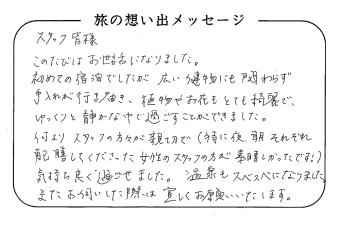 旅の想い出メッセージ
スタッフ皆様
このたびはお世話になりました。
初めての宿泊でしたが 広い建物にも関わらず
手入れが行き届き、植物やお花もとても綺麗で、
ゆっくりと静かな中で過ごすことができました。
何より スタッフの方々が親切で(特に夜、朝それぞれ
配膳してくださった女性のスタッフの方が素晴しかったです!)
気持ち良く過ごせました。 温泉もスベスベになりました。
またお伺いした際は 宜しくお願いいたします。